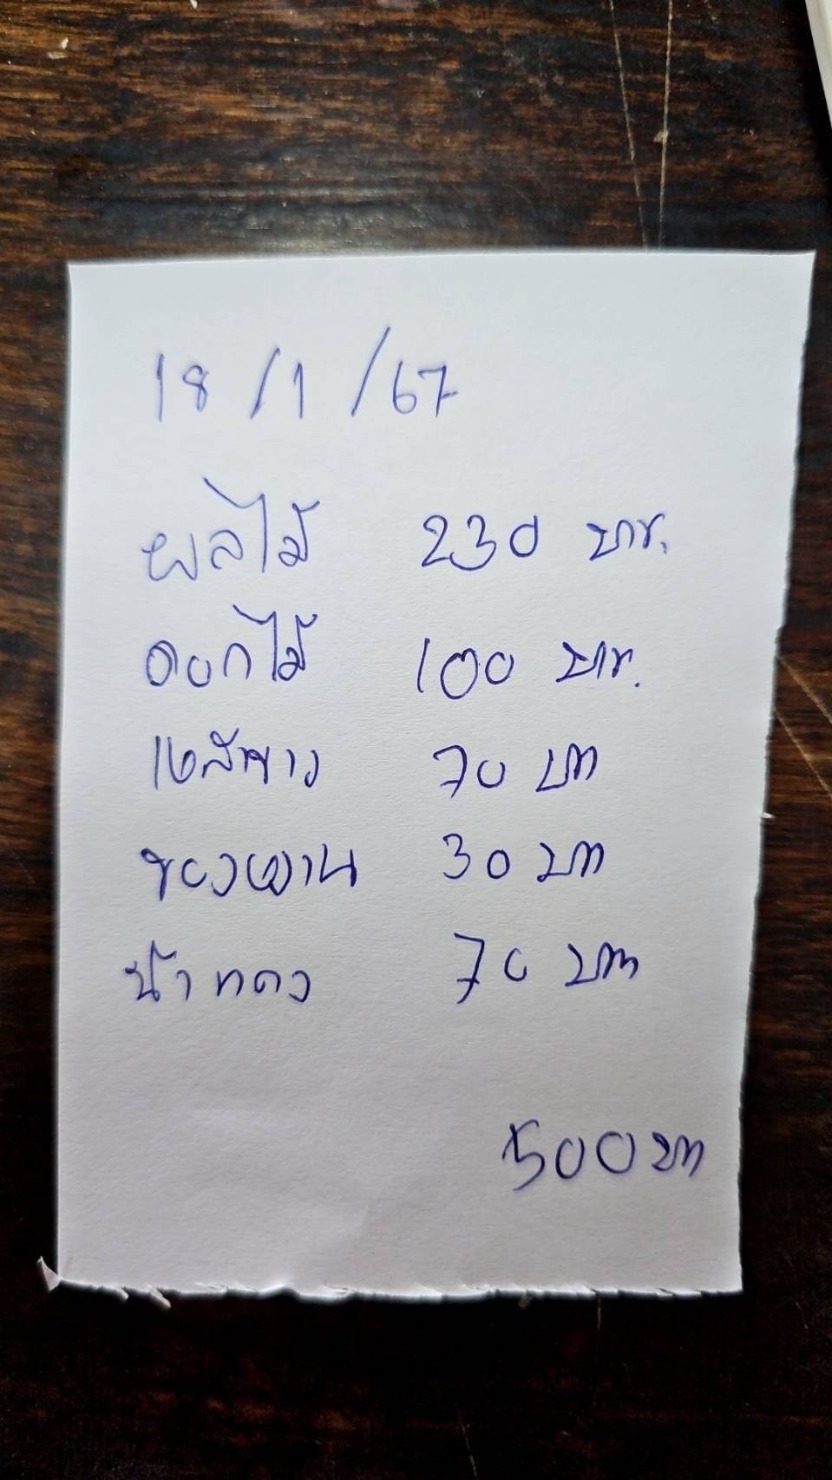 18/1/67
ผลไม้ 230 บาท.
ดอกไม้ 100 บาท.
70 บาท
ของหวาน 30 บาท
น้ำแดง 70 บาท
500 บาท